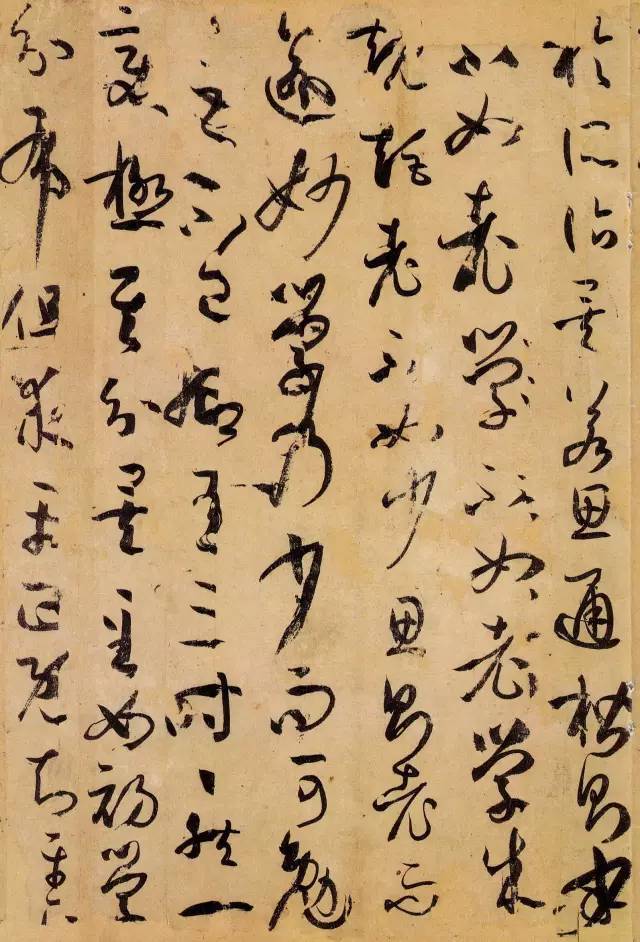 於所詣矣若思通楷則少
不如老學不如老學成
規矩老不如少思則老而
逾妙學乃少而可勉
々之不已抑有三時々然一
變極其分矣至如初學
分布但求平正既知平